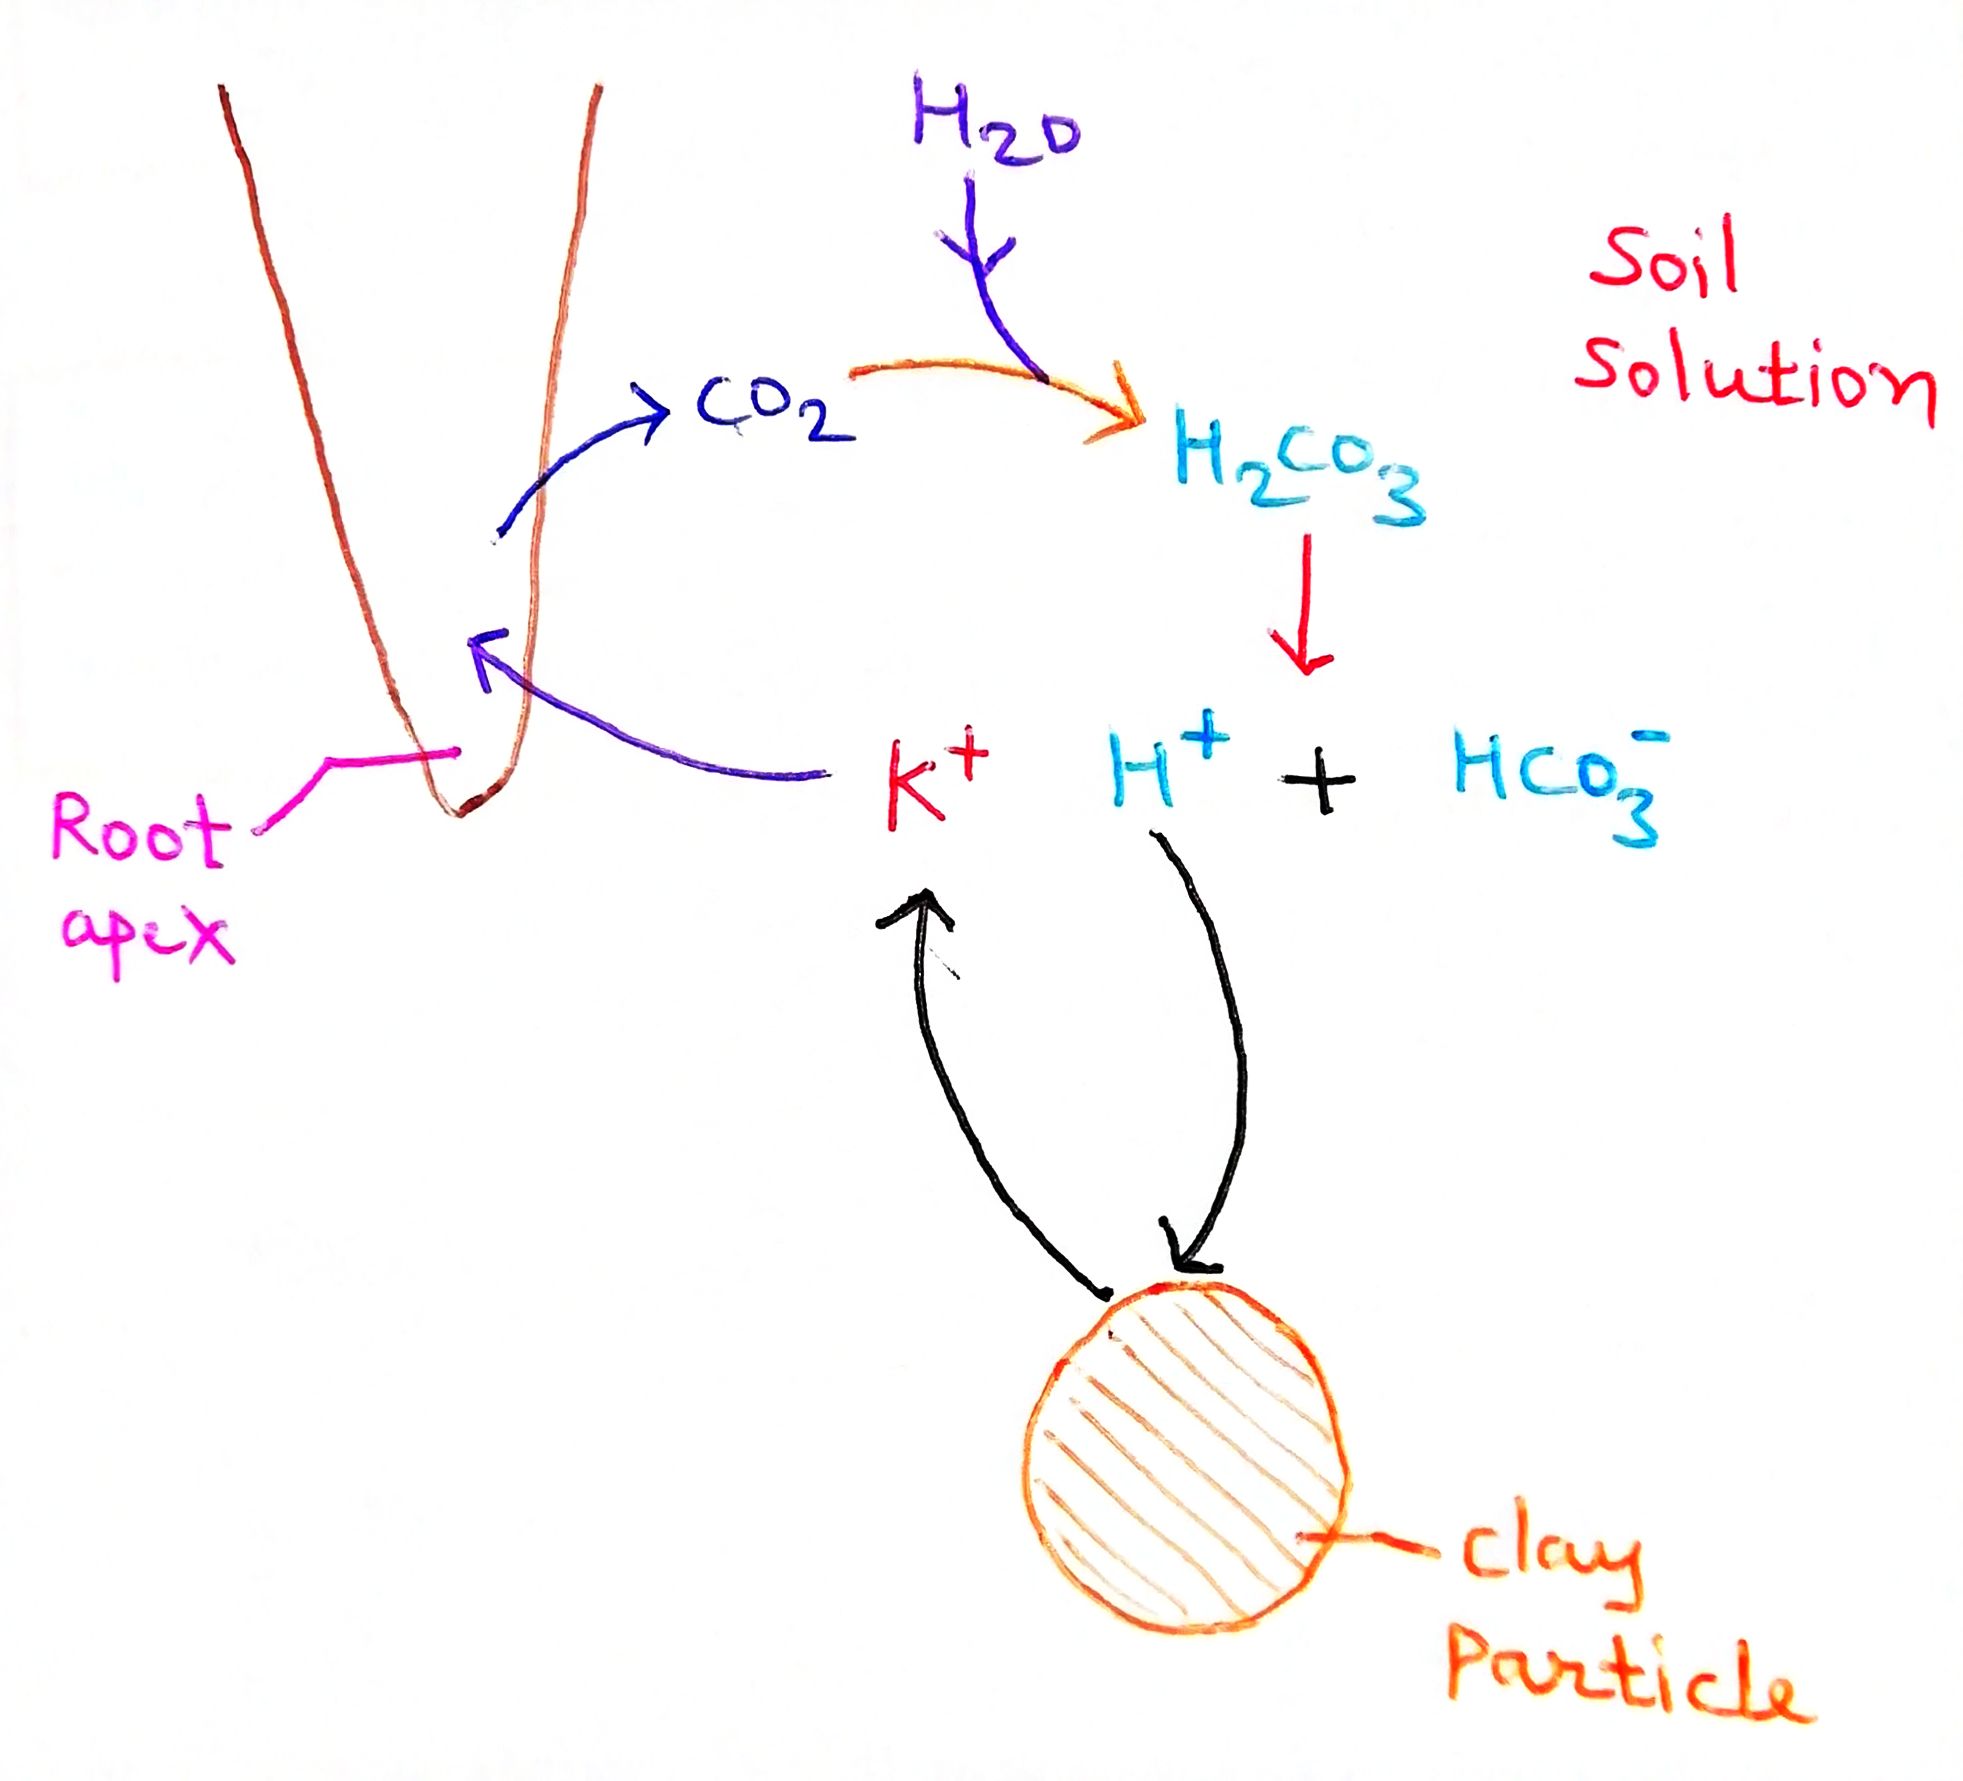 H₂O
Soil
Solution
CO₂
H₂CO₃
K⁺ H⁺ + HCO₃⁻
Root
apex
Clay
Particle